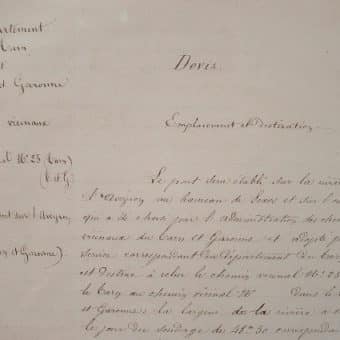 artement
Tarn
et
et Garonne
vicinaux
al Nº 25 (Tarn)
(T & G.
ont sur l'Aveyron
n et Garonne)
Devis
Emplacement et destination
Le pont sera établi sur la riviè
l'Aveyron au hameau de et sur l'em
qui a été choisi par l'administration des chem
vicinaux du Tarn et Garonne et adopté p
Service correspondant du Département du Tar
est destiné à relier le chemin vicinal Nº 25
le Tarn au chemin vicinal Nº dans le
et Garonne; la largeur de la rivière a
le jour du sondage de 41m 30 correspondan